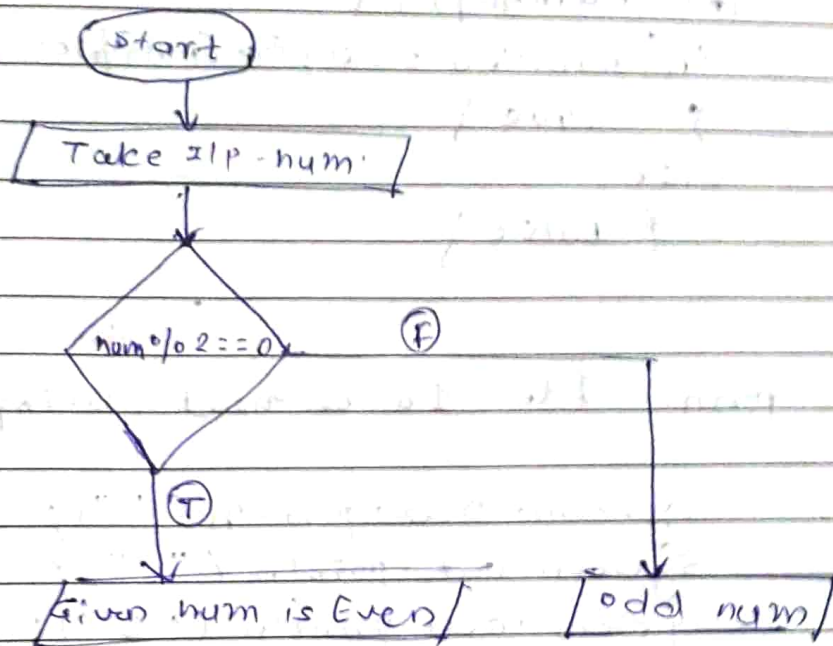 start
Take I/P num
num % 2 == 0
F
T
Given num is Even
odd num